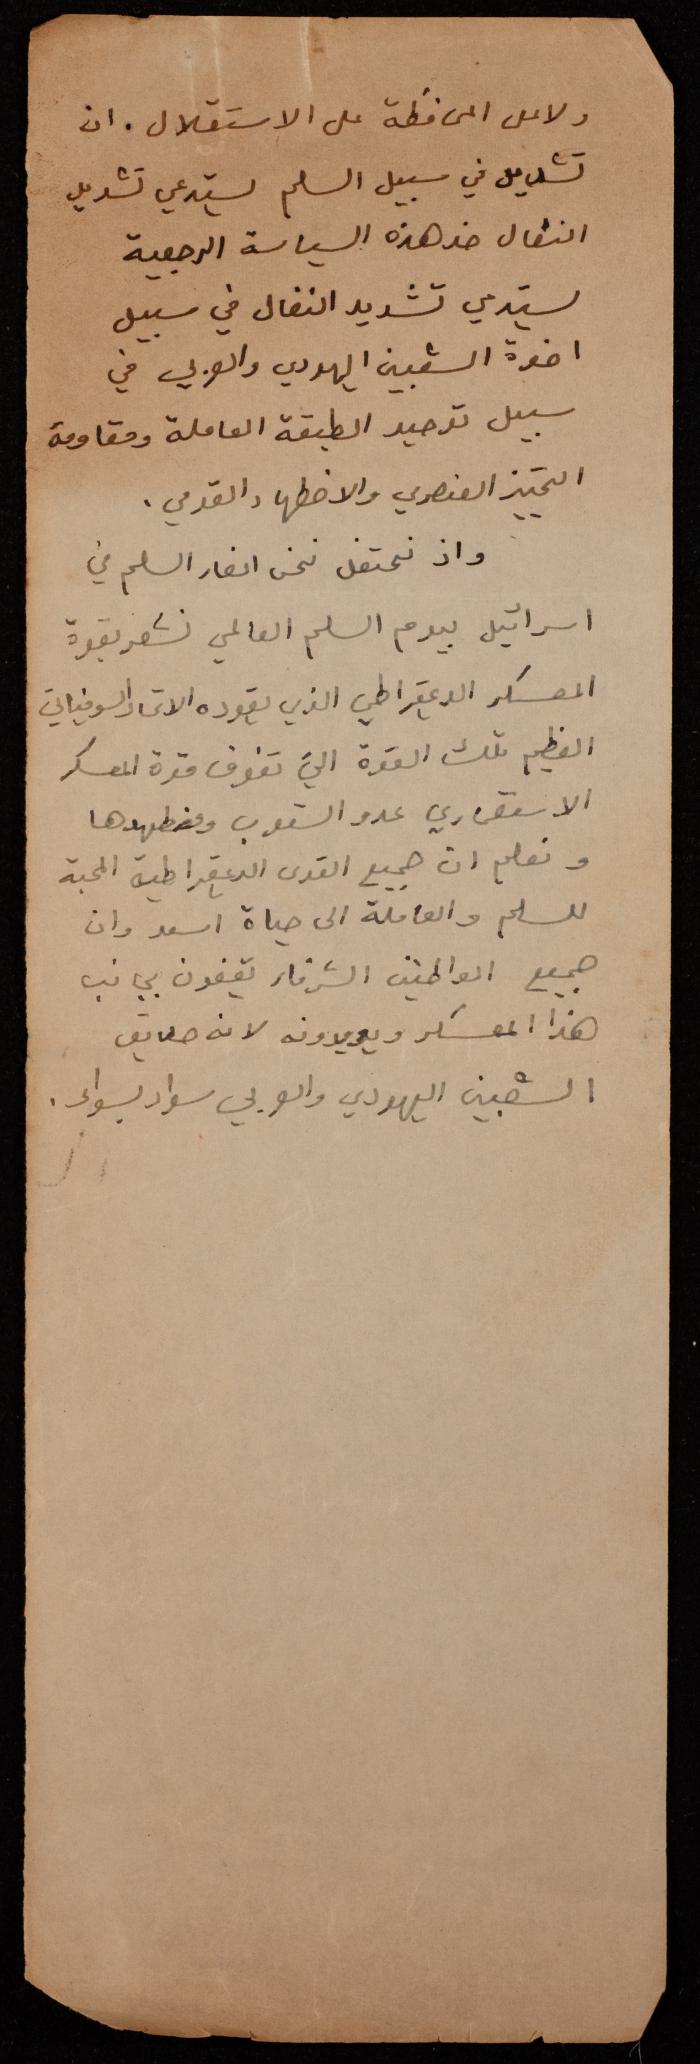 ولا على المحافظة على الاستقلال. ان
تشديد في سبيل السلم يستدعي تشديد
النضال ضد هذه السياسة الرجعية
يستدعي تشديد النضال في سبيل
اخوة الشعبين اليهودي والعربي في
سبيل توحيد الطبقة العاملة ومقاومة
التمييز العنصري والاضطهاد القومي.
واذ نحتفل نحن انصار السلم في
اسرائيل بيوم السلم العالمي نشعر بقوة
المعسكر الديمقراطي الذي يقوده الاتحاد السوفياتي
العظيم تلك القوة التي تفوق قوة المعسكر
الاستعماري عدو الشعوب ومضطهدها
ونعلم ان جميع القوى الديمقراطية المحبة
للسلم والعاملة الى حياة اسعد وان
جميع المواطنين الشرفاء يقفون بجانب
هذا المعسكر ويؤيدونه لانه صديق
الشعبين اليهودي والعربي سواء بسواء.